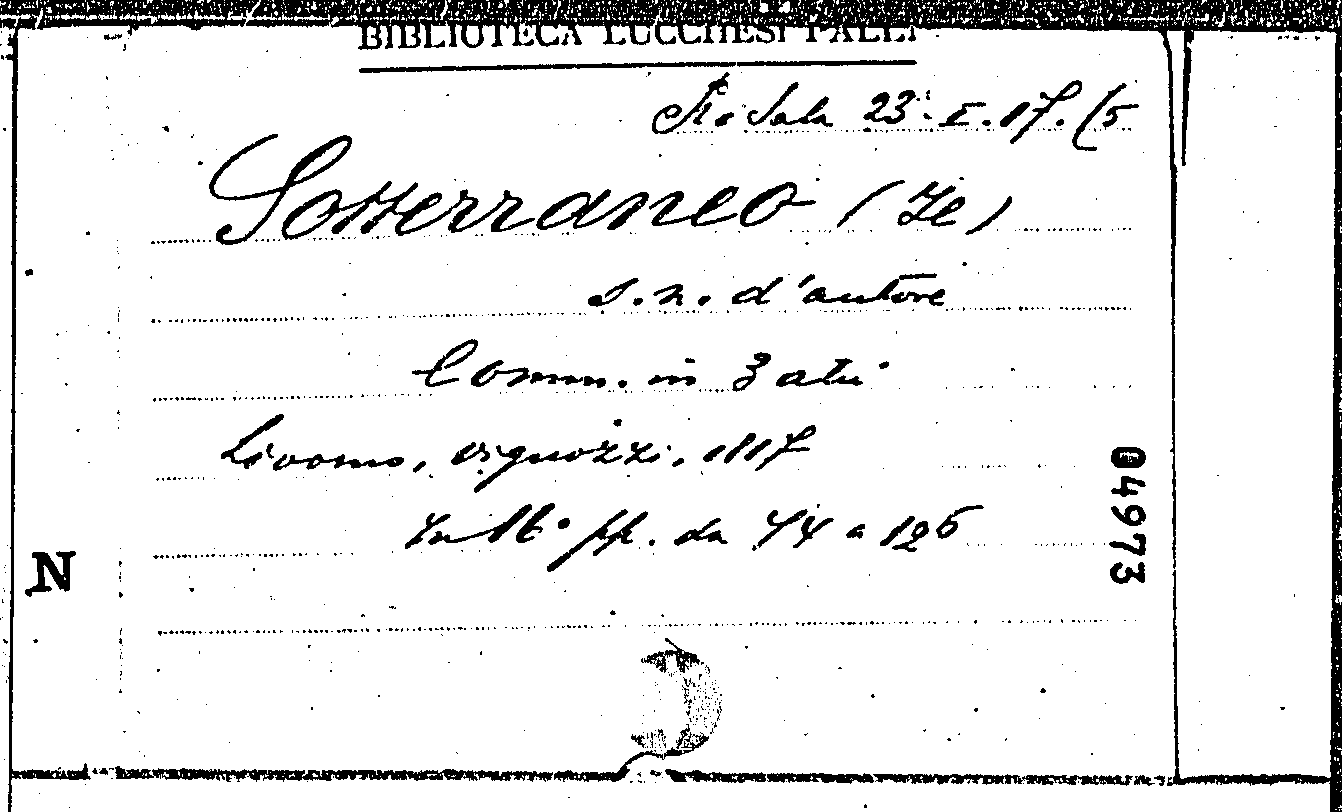 BIBLIOTECA LUCCHESI PALLI
Sala 23. I. 17. (5
Sotterraneo (Il)
s. n. d'autore
Comm. in 3 atti
Livorno, Vignozzi, 1817
In 16° pp. da 74 a 126
04973
N